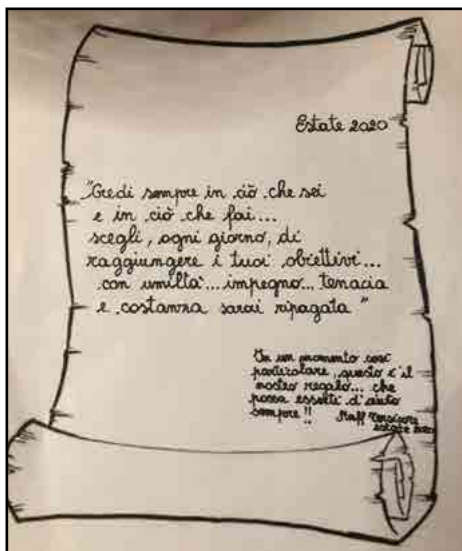 Estate 2020
"Credi sempre in ciò che sei
e in ciò che fai...
scegli, ogni giorno, di
raggiungere i tuoi obiettivi...
con umiltà... impegno... tenacia
e costanza sarai ripagata"
In un momento così
particolare, questo è il
nostro regalo... che
possa esserti d'aiuto
sempre!! Staff
estate 2020